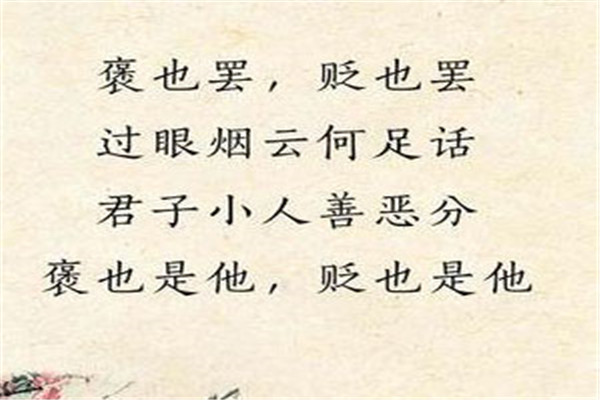 褒也罢，贬也罢
过眼烟云何足话
君子小人善恶分
褒也是他，贬也是他